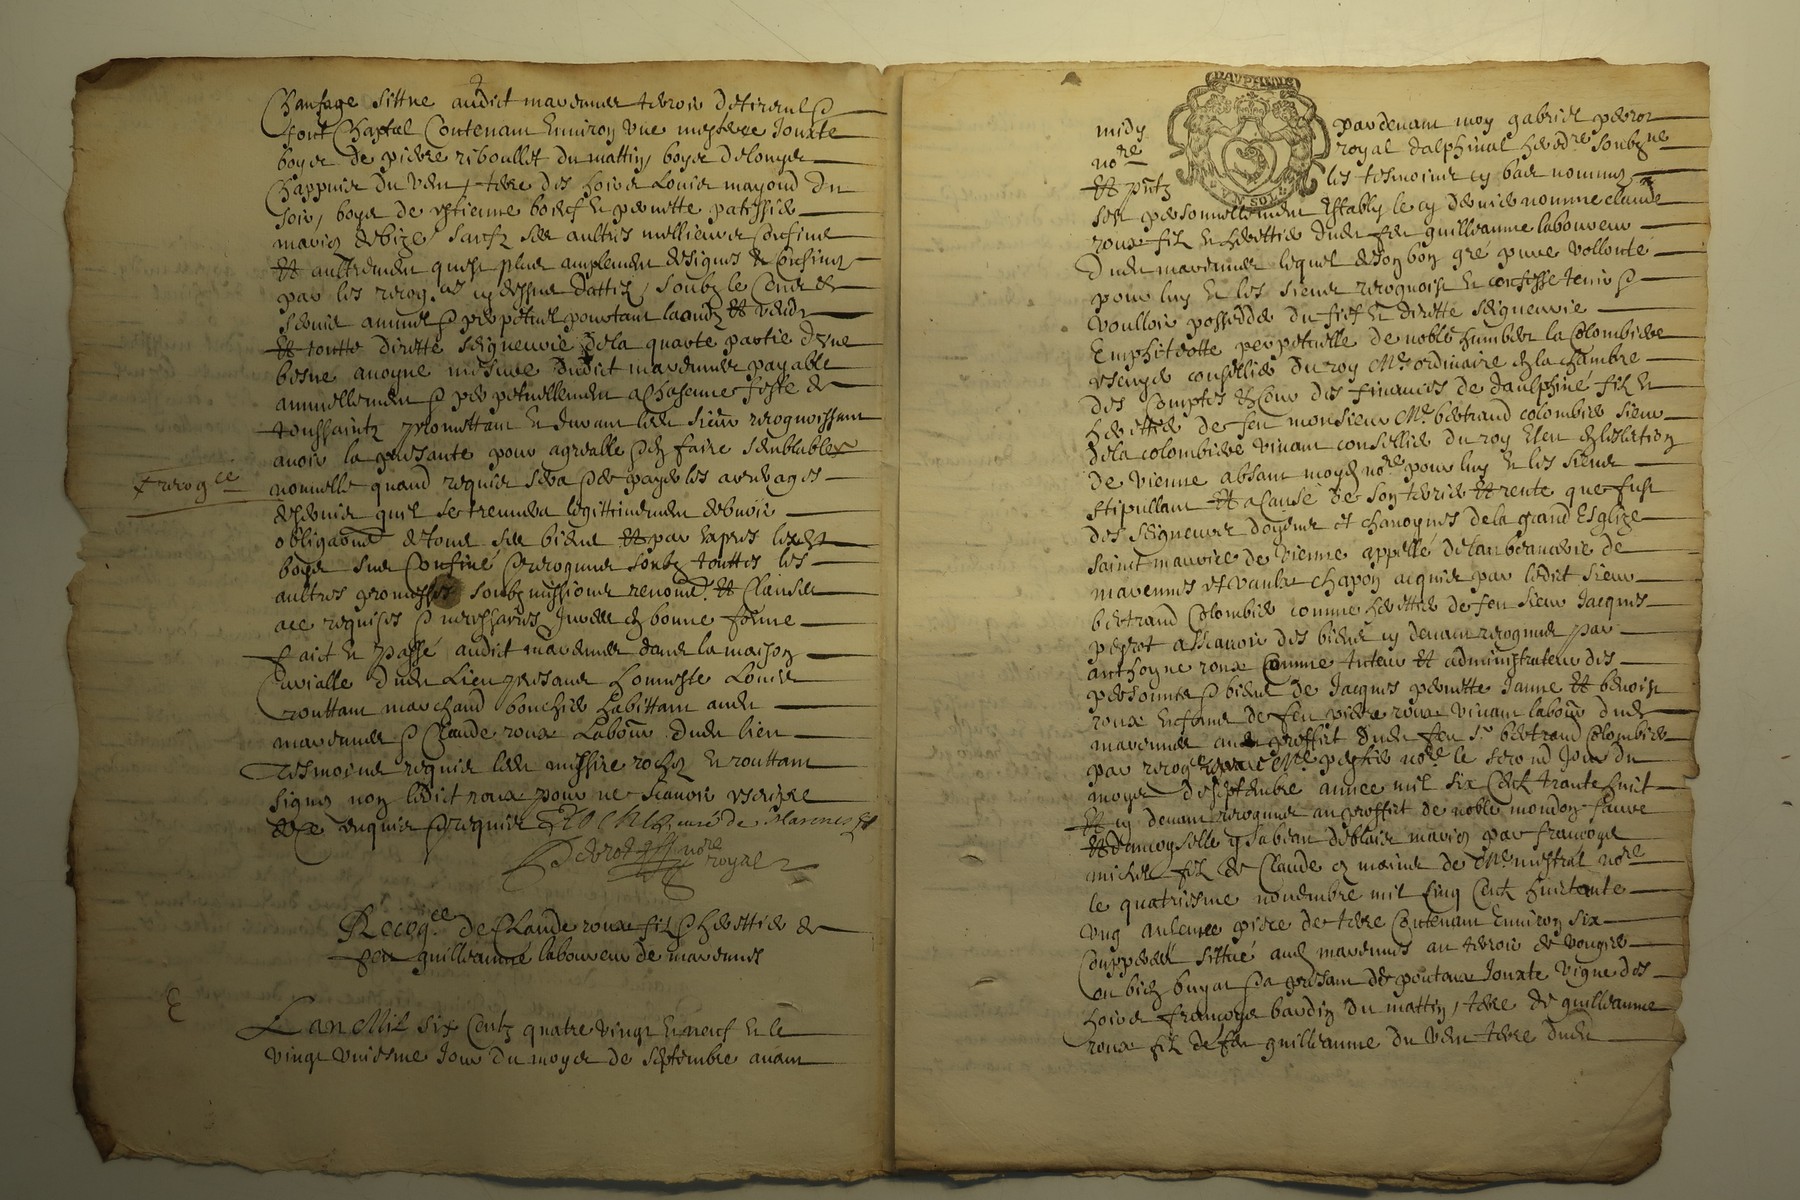 Chanfage sittue audict marennes terroir de
font Chapal Contenant Environ une mestere Jouxte
boyer de pierre riboullet du mattin boyer de
Chappuis du vent, terre des hoirs Louis mayoud du
soir, boyer de estienne boref et pernette patissier
mariez de bize, sauf ses aultres meillieures confins
Et aultrement quest plus amplement designes et Confines
par les recog.ces cy dessus dattes, soubz le Cens et
servis annuel et perpetuel portant laoudz et vendz
Et toutte directe seigneurie de la quarte partie dune
besne avoyne mesure dudict marennes payable
annuellement et perpetuellement a Chasenne feste de
toussaintz promettant et durant ledit sieur recognoissant
avoir la presante pour agreable et en faire semblables
nouvelle quand requis sera et de payer les arerages
desservis quil se treuvera legittimement debvoir
obligaõns de tous ses biens Et par expres lesdits
boyer sus Confiné et recogneu soubz touttes les
aultres promesses soubzmissions renonc. Et Clauses
ace requises et necessaires Jurée en bonne forme
faict et passé audict marennes dans la maison
Curialle dudit Lieu presant honneste Louis
routtan marchand bouchier habittant audit
marennes et Claude roux Labour. dudit lieu
tesmoins requis ledit messire rochez et routtan
signez non ledict roux pour ne scavoir escripre
de ce enquis et requis ROCHE, curé de Marenes
Perrot no.re royal
recog.ce
Recog.ce de Claude roux fils et herittier de
feu guilleaume laboureur de marennes
Lan Mil six Centz quatre vingt et neuf et le
vingt uniesme Jour du moys de septembre avant
DAUPHINE
UN SOL
midy
pardevant moy gabriel perrot
no.re
royal dalphinal hered.re soubz.ne
Et p.ntz
les tesmoins cy bas nommez
sest personnellement Estably le cy dernier nommé claude
roux filz et herittier dudit feu guilleaume laboureur
dudit marennes lequel de son bon gré pure vollonté
pour luy et les siens recognoist et confesse tenir et
voulloir posseder du fief et directe seigneurie
Emphiteotte perpetuelle de noble humbert la Colombiere
escuyer conseillier du roy M.e ordinaire en la Chambre
des Comptes et Cour des finances de daulphiné filz et
herittier de feu monsieur M.e bertrand colombier sieur
de la colombiere vivant conseillier du roy Esleu en leslection
de vienne absant moyd no.re pour luy et les siens
stipullant Et acause de son terrier Et rente que fust
des seigneurs doyens et chanoynes de la grand Esglize
sainct maurice de vienne appellé de
marennes et vaulx Chapon acquis par ledict sieur
bertrand Colombier comme herittier de feu sieur Jacques
perrot assavoir des biens cy devant recogneus par
anthoyne roux Comme tuteur Et administrateur des
personnes et biens de Jacques pernette Janne Et benoist
roux enfans de feu pierre roux vivant labour dudit
marennes au proffict dudit feu s.r bertrand Colombier
par recog.ce receue M.e no.re le second Jour du
moys de septembre annee mil six Cent trante huit
Et cy devant recogneus au proffict de noble mondon faure
Et damoyselle ysabeau deblaise mariez par francoys
michel filz de Claude es mains de M.e mistral no.re
le quatriesme novembre mil Cinq Cent huictante
ung aulenee piece de terre Contenant Environ six
Coupperées sittué audit marennes au terroir de vougier
ou bien buyat et a presant de poutaux Jouxte vigne des
hoirs francoys bardin du mattin, terre de guilleaume
roux filz de feu guilleaume du vent terre dudit